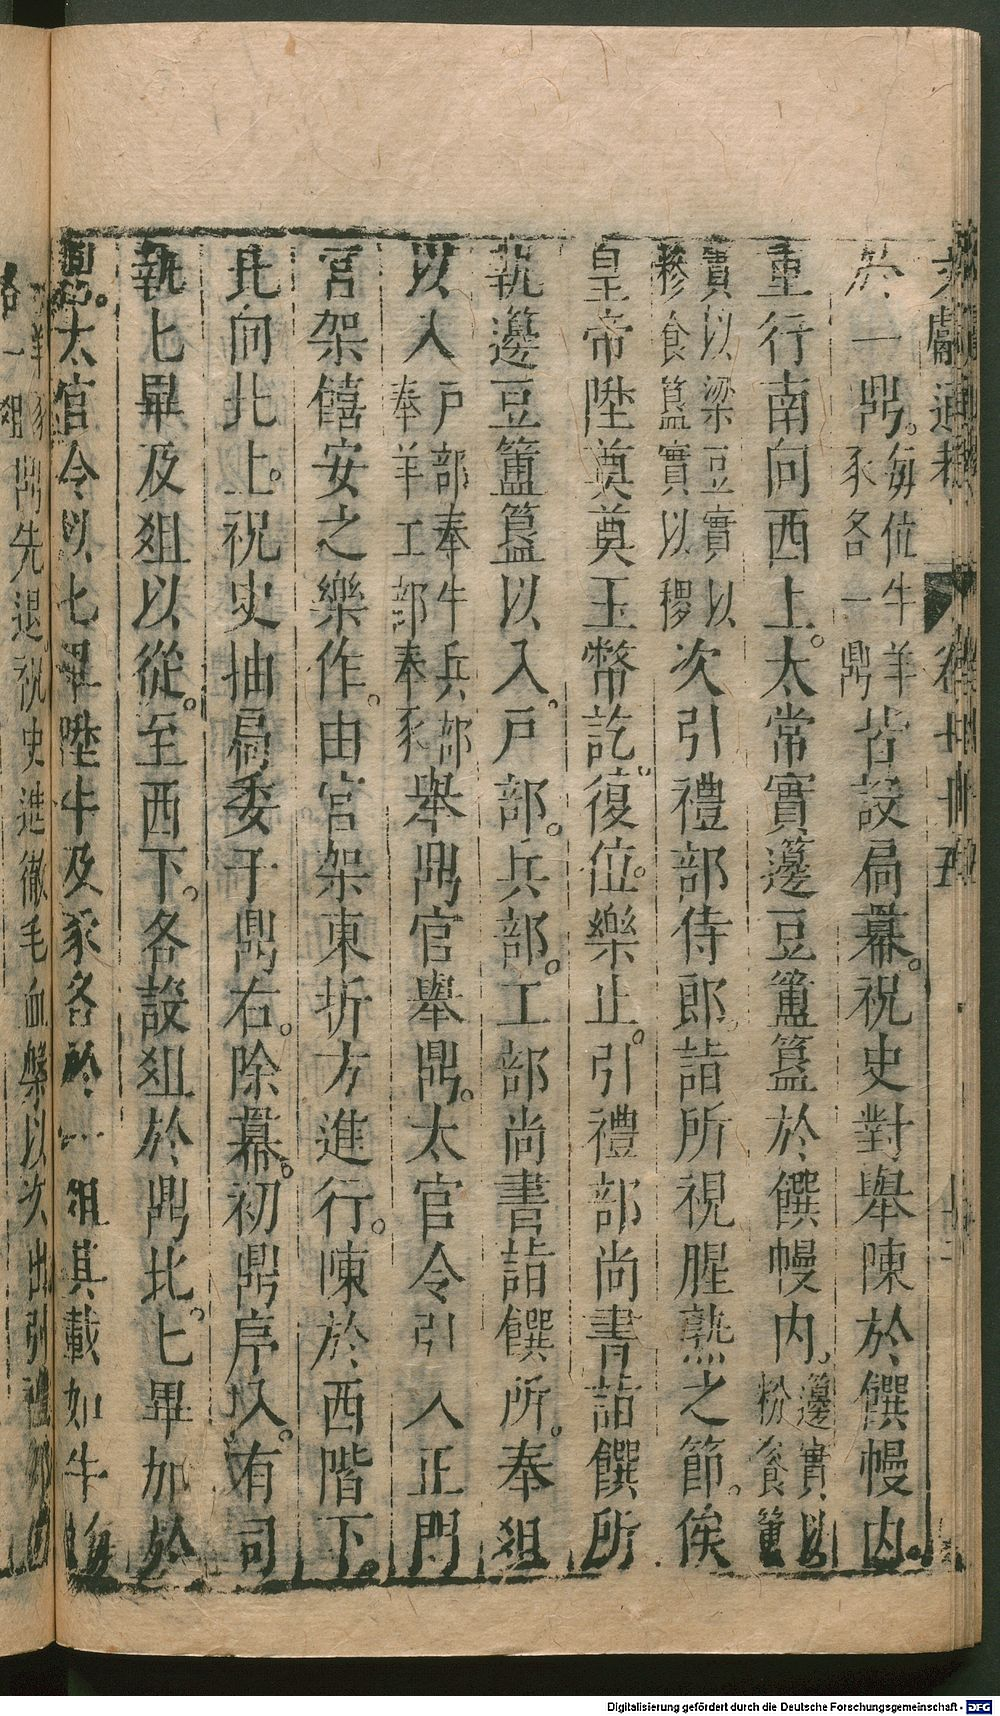 文獻通考 卷九十五
於一鼎每位牛羊豕各一鼎皆設扃羃。祝史對舉陳於饌幔內。
重行南向西上。太常實籩豆簠簋於饌幔內。籩實以粉餈簠
實以粱豆實以糝食簋實以稷次引禮部侍郎。詣所視腥熟之節。俟
皇帝陞奠奠玉幣訖。復位。樂止。引禮部尚書詣饌所
執籩豆簠簋以入。戶部。兵部。工部尚書詣饌所。奉俎
以入戶部奉牛兵部奉羊工部奉豕舉鼎官舉鼎。太官令引入正門
宮架僖安之樂作。由宮架東折方進行。陳於西階下。
北向北上。祝史抽扃委于鼎右。除羃。初鼎序入。有司
執匕畢及俎以從。至西下。各設俎於鼎北。匕畢加於
鼎。太官令以匕畢陞牛及豕各於一俎其載如牛每
鼎先退。祝史進徹毛血槃以次出引禮部
Digitalisierung gefördert durch die Deutsche Forschungsgemeinschaft - DFG